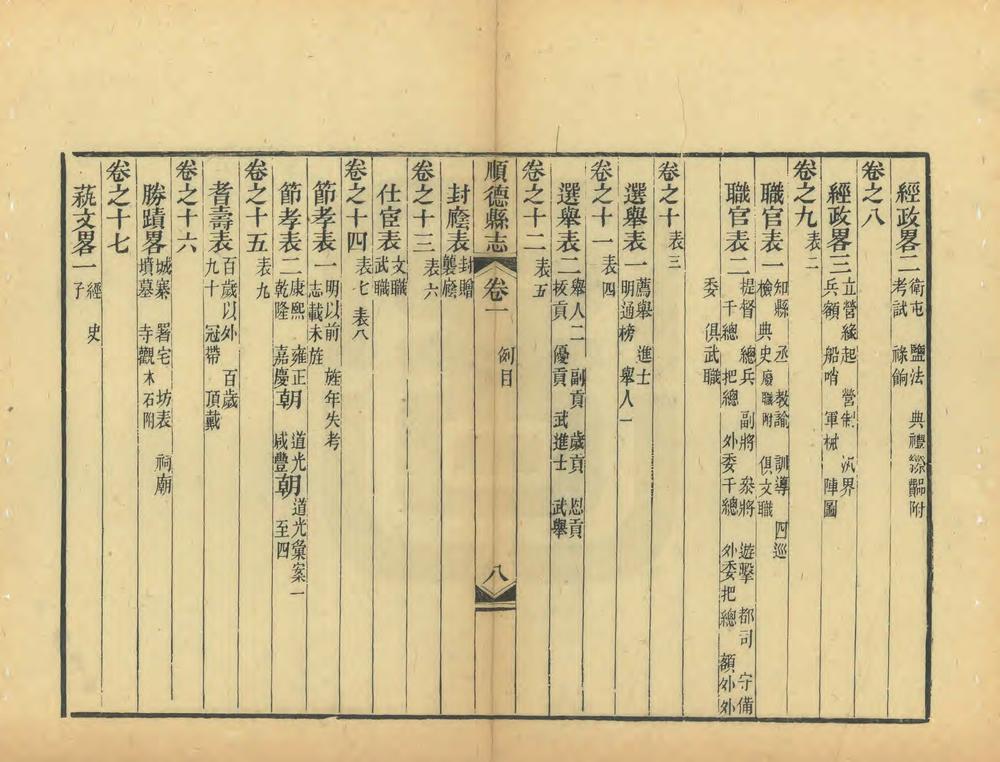 經政畧二 衛屯 鹽法 典禮 附
考試 祿餉
卷之八
經政畧三 立營緣起 營制 汛界
兵額 船哨 軍械 陣圖
卷之九 表二
職官表一 知縣 丞 教諭 訓導 四巡
檢 典史 廢職附 俱文職
職官表二 提督 總兵 副將 叅將 遊擊 都司 守備
千總 把總 外委千總 外委把總 額外外
委 俱武職
卷之十 表三
選舉表一 薦舉 進士
明通榜 舉人一
卷之十一 表四
選舉表二 舉人二 副貢 歲貢 恩貢
拔貢 優貢 武進士 武舉
卷之十二 表五
順德縣志 卷一 例目 八
封廕表 封贈
襲廕
卷之十三 表六
仕宦表 文職
武職
卷之十四 表七 表八
節孝表一 明以前 旌年失考
志載未旌
節孝表二 康熙 雍正 道光朝 道光彙案一
乾隆 嘉慶朝 咸豐朝 至四
卷之十五 表九
耆壽表 百歲以外 百歲
九十 冠帶 頂戴
卷之十六
勝蹟畧 城寨 署宅 坊表 祠廟
墳墓 寺觀 木石附
卷之十七
藝文畧一 經 史
子